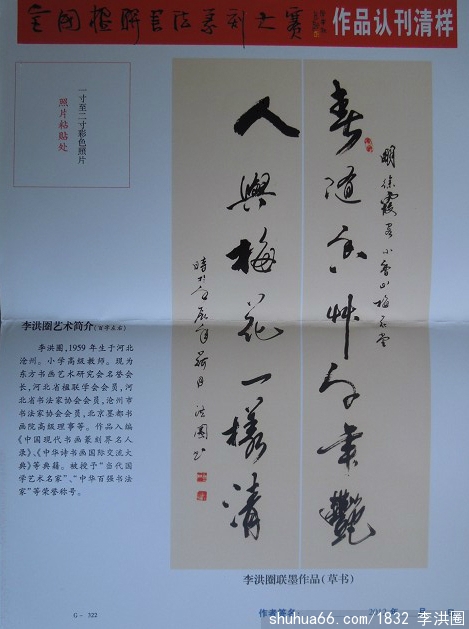 全国楹联书法篆刻大赛
作品认刊清样
一寸至二寸彩色照片
照片粘贴处
明徐霞客小香山梅花堂
春随香艸千年艷
人與梅花一樣清
洪圈书
李洪圈艺术简介(百字左右)
李洪圈,1959 年生于河北
沧州。小学高级教师。现为
东方书画艺术研究会名誉会
长,河北省楹联学会会员,河
北省书法家协会会员,沧州市
书法家协会会员,北京墨都书
画院高级理事等。作品入编
《中国现代书画篆刻界名人
录》、《中华诗书画国际交流大
典》等典籍。被授予“当代国
学艺术名家”、“中华百强书法
家”等荣誉称号。
李洪圈联墨作品(草书)
G- 322
作者签名
年 月 日
shuhua66.com/1832 李洪圈